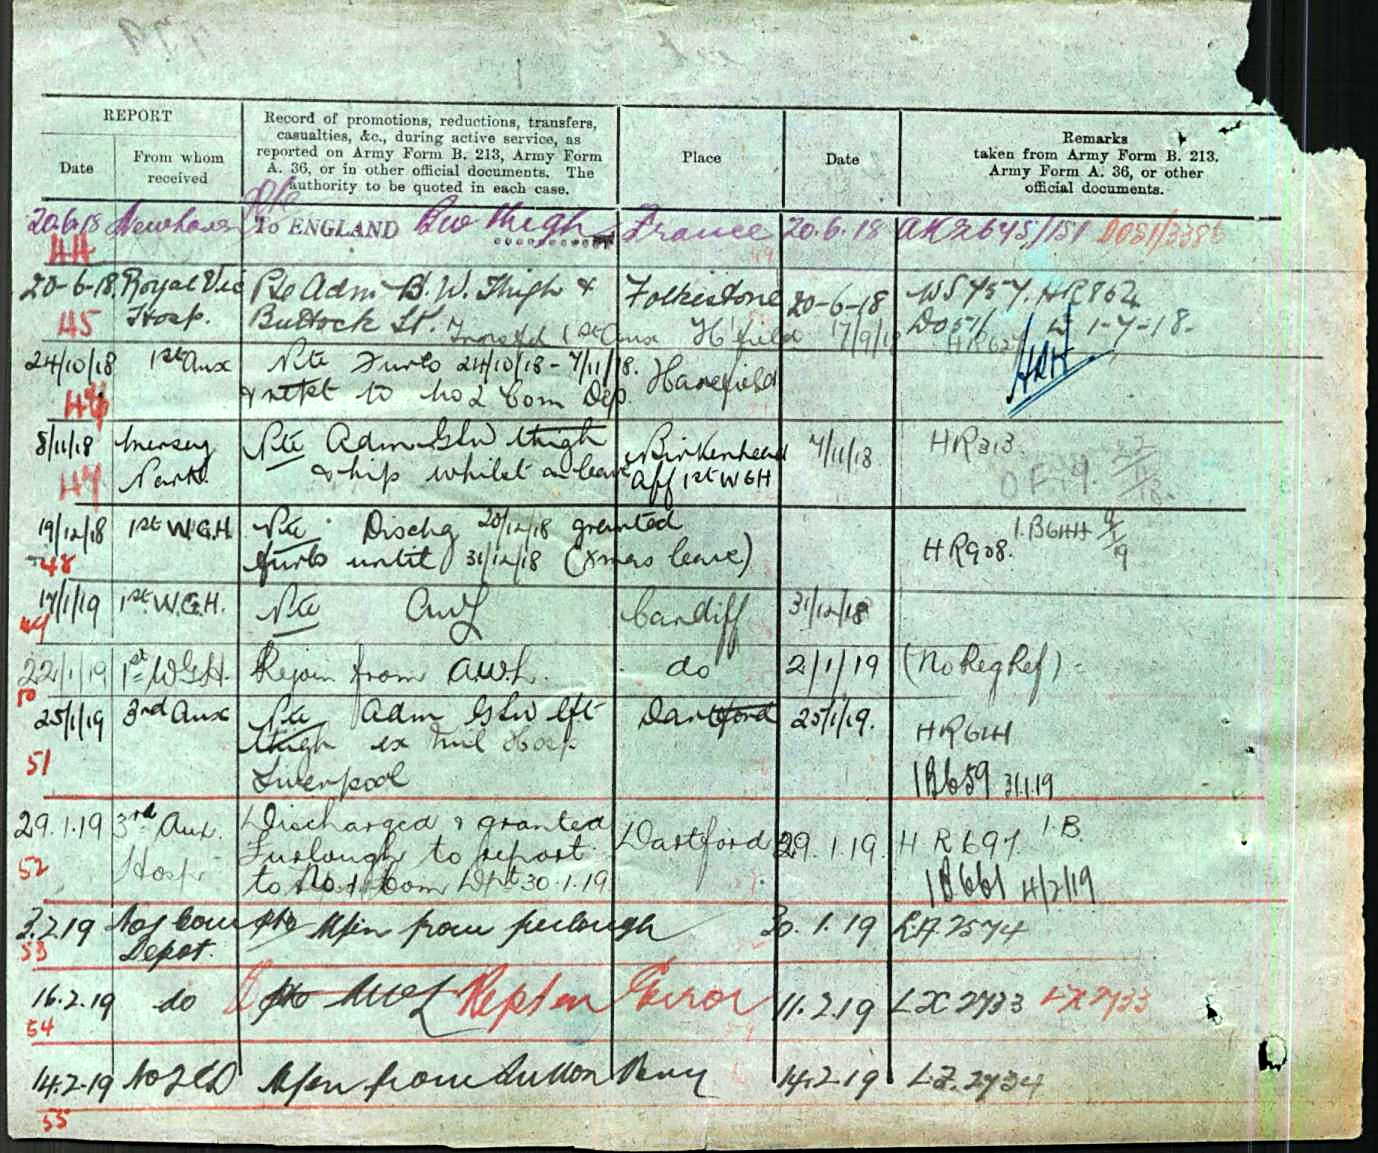 REPORT
Record of promotions, reductions, transfers,
casualties, &c., during active service, as
reported on Army Form B. 213, Army Form
A. 36, or in other official documents. The
authority to be quoted in each case.
Date
From whom
received
Place
Date
Remarks
taken from Army Form B. 213.
Army Form A. 36, or other
official documents.
20.6.18 Newhaven Pte To ENGLAND thigh France 20.6.18
44
20-6-18 Royal Vic Pte Adm B.W. Thigh & Folkestone 20-6-18
45 Hosp. Buttock Transfd 1st Aux H'field 1-7-18.
24/10/18 1st Aux Pte Furlo 24/10/18 - 7/11/18. Harefield
to No 2 Com Dep.
8/11/18 Mersey Pte Adm GSW thigh Birkenhead 7/11/18 HR313.
47 & hip whilst on leave Aff 1st WGH
19/12/18 1st W.G.H Pte Dischg 20/12/18 granted
48 furlo until 31/12/18 (Xmas leave) HR908.
17/1/19 1st W.G.H. Pte AWL Cardiff 31/12/18
49
22/1/19 1st W.G.H. Rejoin from A.W.L. do 2/1/19 (No Reg Ref)
50
25/1/19 3rd Aux Pte Adm GSW lft Dartford 25/1/19.
thigh ex Mil Hosp
51 Liverpool 31.1.19
29.1.19 3rd Aux. Discharged & granted Dartford 29.1.19. HR697 I.B
52 Hosp Furlough to report
to No. 1 Com Dpt 30.1.19 4/2/19
3.2.19 Com from furlough 30.1.19
53 Depot.
16.2.19 do AWL Error 11.2.19 LX 2733 LX 2733
54
14.2.19 from Sutton Veny 14.2.19 LZ.2734
55